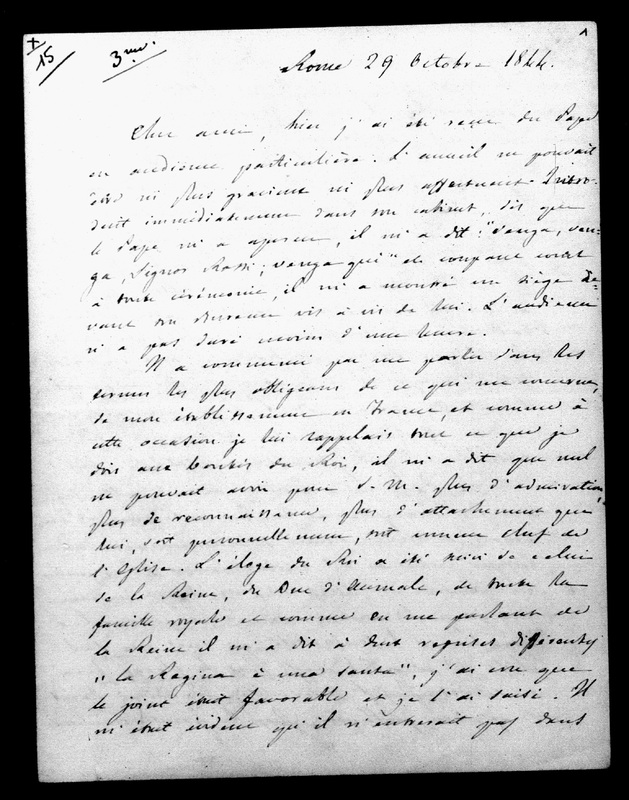 +
15
3me.
Rome 29 Octobre 1844.
Cher ami, hier j'ai été reçu du Pape
en audience particulière. L'accueil ne pouvait
être ni plus gracieux ni plus affectueux. Intro-
duit immédiatement dans son cabinet, dès que
le Pape m'a aperçu, il m'a dit: "Venga, ven-
ga, Signor Rossi, venga qui" et coupant court
à toute cérémonie, il m'a montré un siège de-
vant son bureau vis à vis de lui. L'audience
n'a pas duré moins d'une heure.
Il a commencé par me parler dans les
termes les plus obligeans de ce qui me concerne,
de mon établissement en France, et comme à
cette occasion je lui rappelais tout ce que je
dois aux bontés du Roi, il m'a dit que nul
ne pouvait avoir pour S. M. plus d'admiration,
plus de reconnaissance, plus d'attachement que
lui, soit personnellement, soit comme chef de
l'Eglise. L'éloge du Roi a été suivi de celui
de la Reine, du Duc d'Aumale, de toute la
famille royale et comme en me parlant de
la Reine il m'a dit à deux reprises différentes
"la Regina è una santa", j'ai cru que
le joint était favorable et je l'ai saisi. Il
m'était évident qu'il n'entrerait pas dans